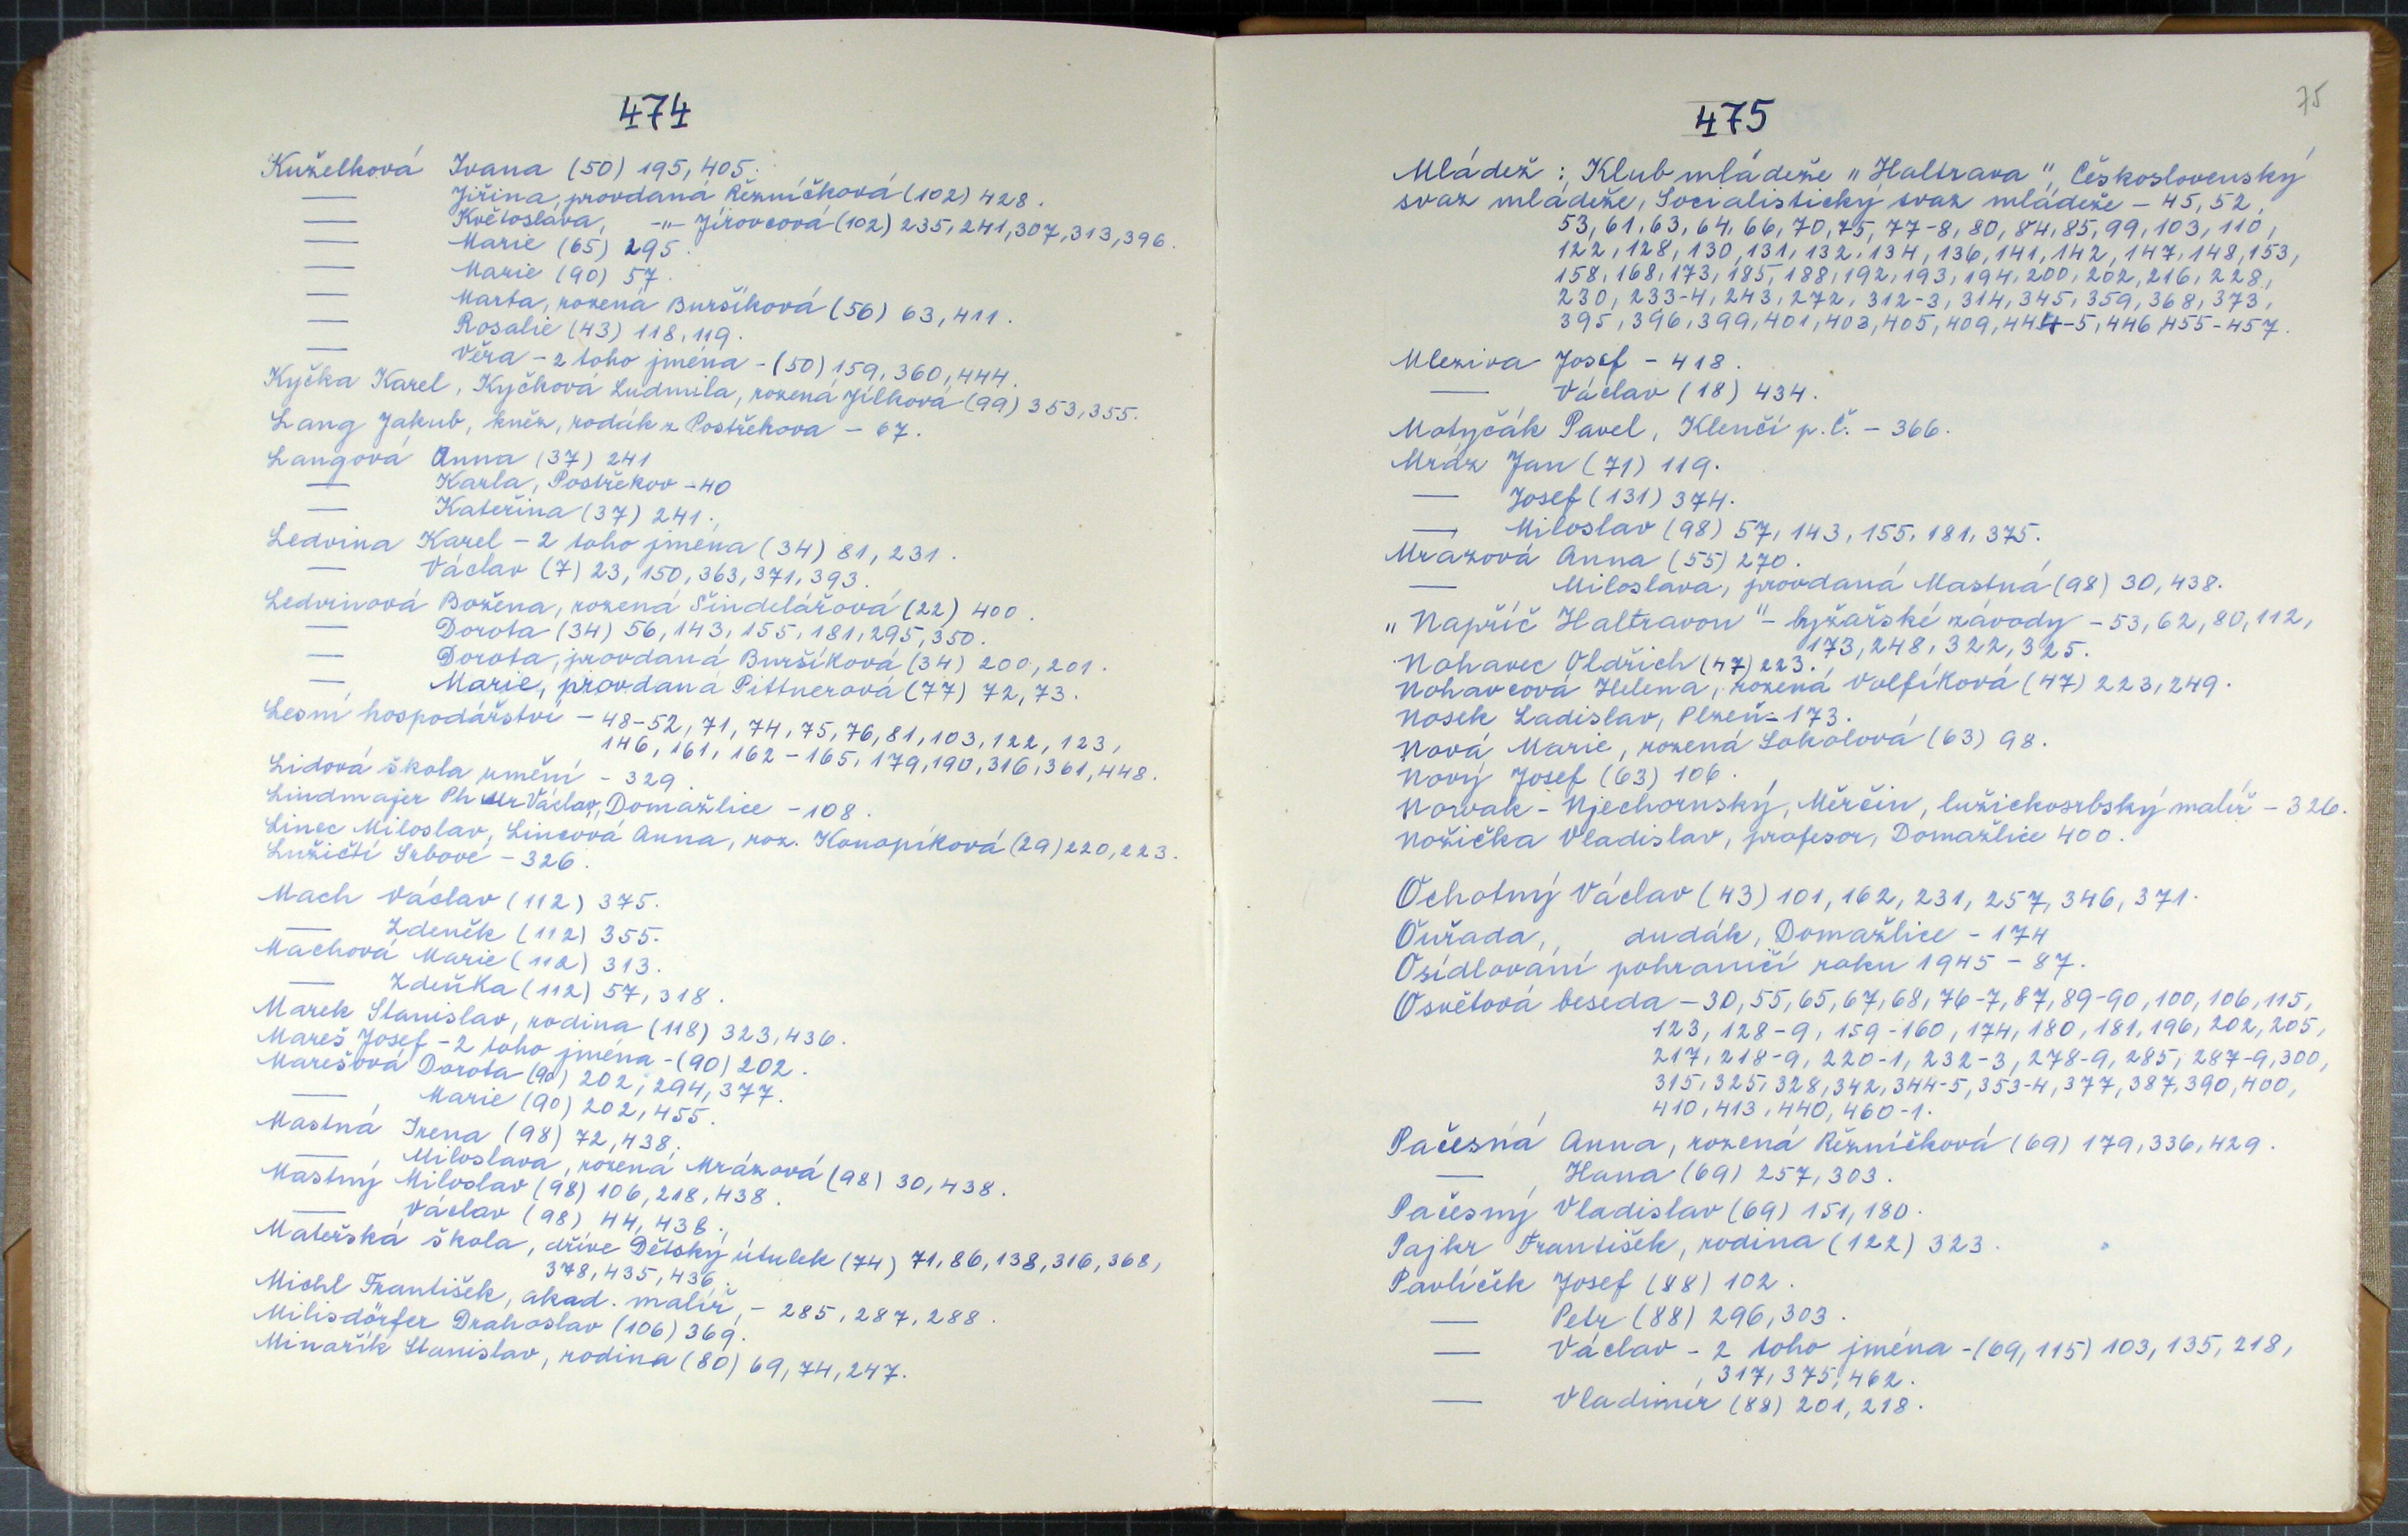 474
Kuželková Ivana (50) 195, 405.
— Jiřina, provdaná Řezníčková (102) 428.
— Květoslava, -"- Jírovcová (102) 235, 241, 307, 313, 396.
— Marie (65) 295.
— Marie (90) 57.
— Marta, rozená Buršíková (56) 63, 411.
— Rosalie (43) 118, 119.
— Věra - 2 toho jména - (50) 159, 360, 444.
Kyčka Karel, Kyčková Ludmila, rozená Jílková (99) 353, 355.
Lang Jakub, kněz, rodák z Postřekova - 67.
Langová Anna (37) 241
— Karla, Postřekov - 40
— Kateřina (37) 241.
Ledvina Karel - 2 toho jména (34) 81, 231.
— Václav (7) 23, 150, 363, 371, 393.
Ledvinová Božena, rozená Šindelářová (22) 400.
— Dorota (34) 56, 143, 155, 181, 295, 350.
— Dorota, provdaná Buršíková (34) 200, 201.
— Marie, provdaná Pittnerová (77) 72, 73.
Lesní hospodářství - 48-52, 71, 74, 75, 76, 81, 103, 122, 123,
146, 161, 162-165, 179, 190, 316, 361, 448.
Lidová škola umění - 329.
Lindmajer Ph Mr Václav, Domažlice - 108.
Linec Miloslav, Lincová Anna, roz. Konopíková (29) 220, 223.
Lužičtí Srbové - 326.
Mach Václav (112) 375.
— Zdeněk (112) 355.
Machová Marie (112) 313.
— Zdeňka (112) 57, 318.
Marek Stanislav, rodina (118) 323, 436.
Mareš Josef - 2 toho jména - (90) 202.
Marešová Dorota (90) 202, 294, 377.
—, Marie (90) 202, 455.
Mastná Irena (98) 72, 438.
—, Miloslava, rozená Mrázová (98) 30, 438.
Mastný Miloslav (98) 106, 218, 438.
— Václav (98) 44, 438.
Mateřská škola, dříve Dětský útulek (74) 71, 86, 138, 316, 368,
378, 435, 436.
Michl František, akad. malíř, - 285, 287, 288.
Milisdörfer Drahoslav (106) 369.
Minařík Stanislav, rodina (80) 69, 74, 247.
75
475
Mládež: Klub mládeže "Haltrava", Československý
svaz mládeže, Socialistický svaz mládeže - 45, 52,
53, 61, 63, 64, 66, 70, 75, 77-8, 80, 84, 85, 99, 103, 110,
122, 128, 130, 131, 132, 134, 136, 141, 142, 147, 148, 153,
158, 168, 173, 185, 188, 192, 193, 194, 200, 202, 216, 228,
230, 233-4, 243, 272, 312-3, 314, 345, 359, 368, 373,
395, 396, 399, 401, 403, 405, 409, 444-5, 446, 455-457.
Mleziva Josef - 418.
— Václav (18) 434.
Motyčák Pavel, Klenčí p. Č. - 366.
Mráz Jan (71) 119.
— Josef (131) 374.
— Miloslav (98) 57, 143, 155, 181, 375.
Mrazová Anna (55) 270.
— Miloslava, provdaná Mastná (98) 30, 438.
"Napříč Haltravou" - lyžařské závody - 53, 62, 80, 112,
173, 248, 322, 325.
Nohavec Oldřich (47) 223.
Nohavcová Helena, rozená Volfíková (47) 223, 249.
Nosek Ladislav, Plzeň - 173.
Nová Marie, rozená Sokolová (63) 98.
Nový Josef (63) 106.
Nowak - Njechornský, Měrčin, lužickosrbský malíř - 326.
Nožička Vladislav, profesor, Domažlice 400.
Ochotný Václav (43) 101, 162, 231, 257, 346, 371.
Ouřada, , dudák, Domažlice - 174
Osídlování pohraničí roku 1945 - 87.
Osvětová beseda - 30, 55, 65, 67, 68, 76-7, 87, 89-90, 100, 106, 115,
123, 128-9, 159-160, 174, 180, 181, 196, 202, 205,
217, 218-9, 220-1, 232-3, 278-9, 285, 287-9, 300,
315, 325, 328, 342, 344-5, 353-4, 377, 387, 390, 400,
410, 413, 440, 460-1.
Pačesná Anna, rozená Řezníčková (69) 179, 336, 429.
—, Hana (69) 257, 303.
Pačesný Vladislav (69) 151, 180.
Pajkr František, rodina (122) 323.
Pavlíček Josef (88) 102.
— Petr (88) 296, 303.
— Václav - 2 toho jména - (69, 115) 103, 135, 218,
317, 375, 462.
— Vladimír (88) 201, 218.